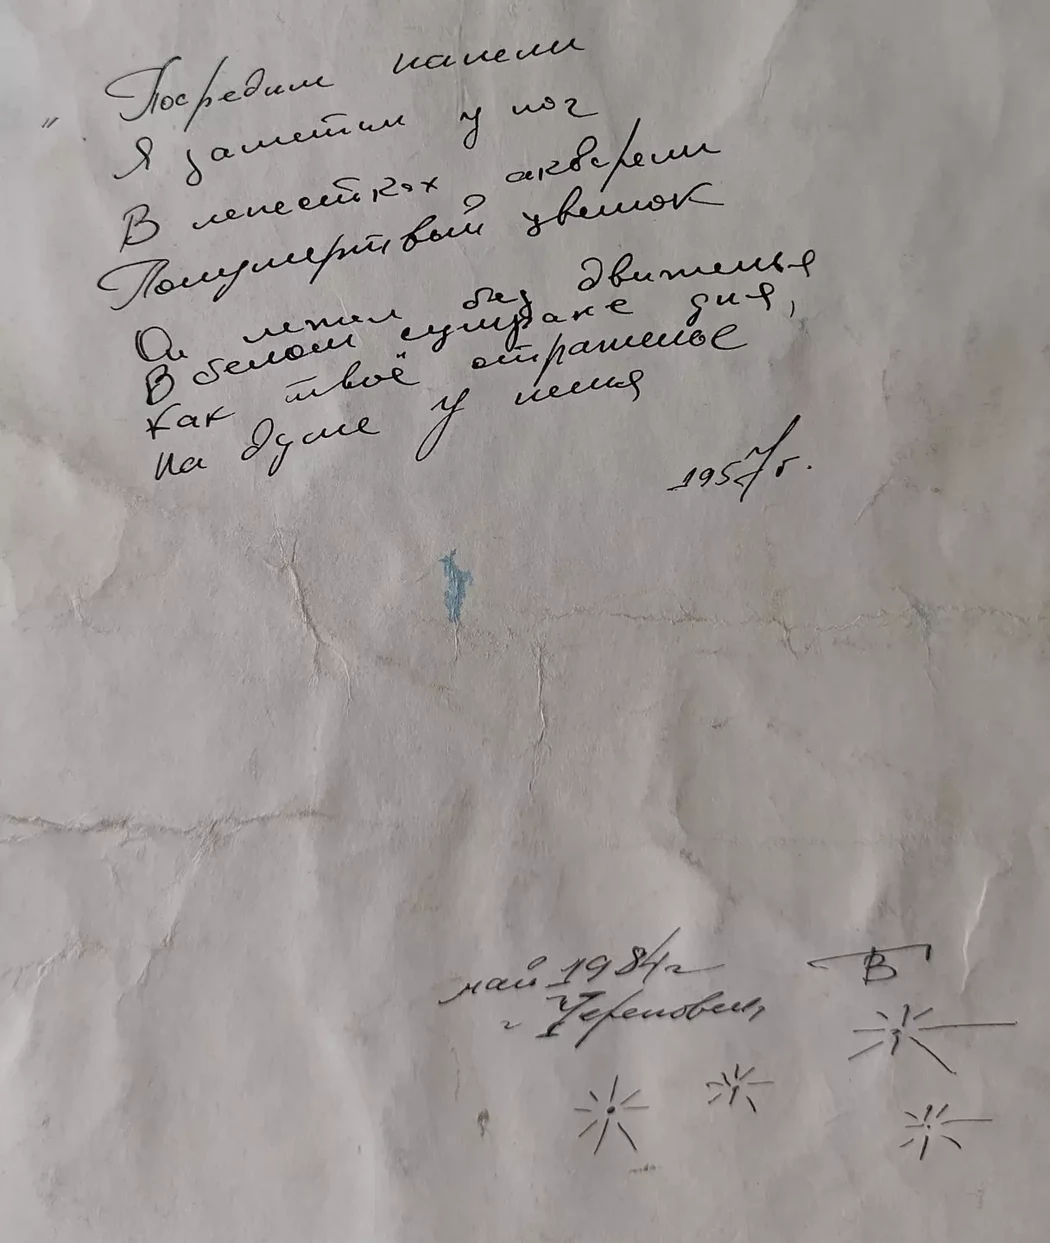 „ Посредим панели
Я заметил у ног
В лепестках акварели
Полумертвый цветок
Он лежал без движенья
В белом сумраке дня,
как твоё отраженье
на душе у меня
1957г.
май 1984г
г Череповец
В